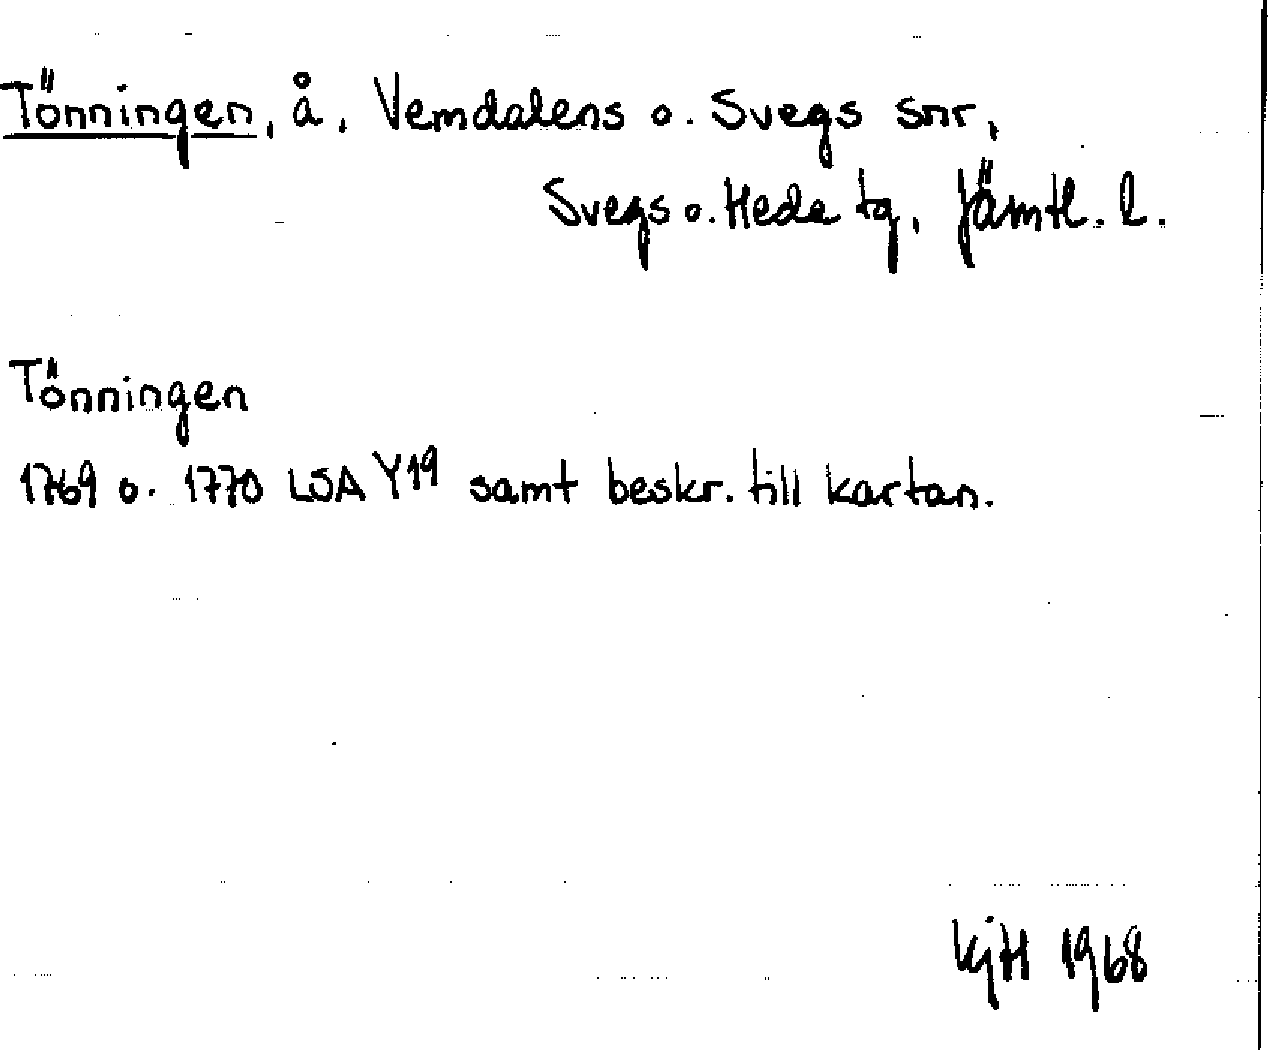 Tönningen, å, Vemdalens o. Svegs snr,
Svegs o. Hede tg, Jämtl. l.
Tönningen
1769 o. 1770 LSA Y19 samt beskr. till kartan.
KjH 1968